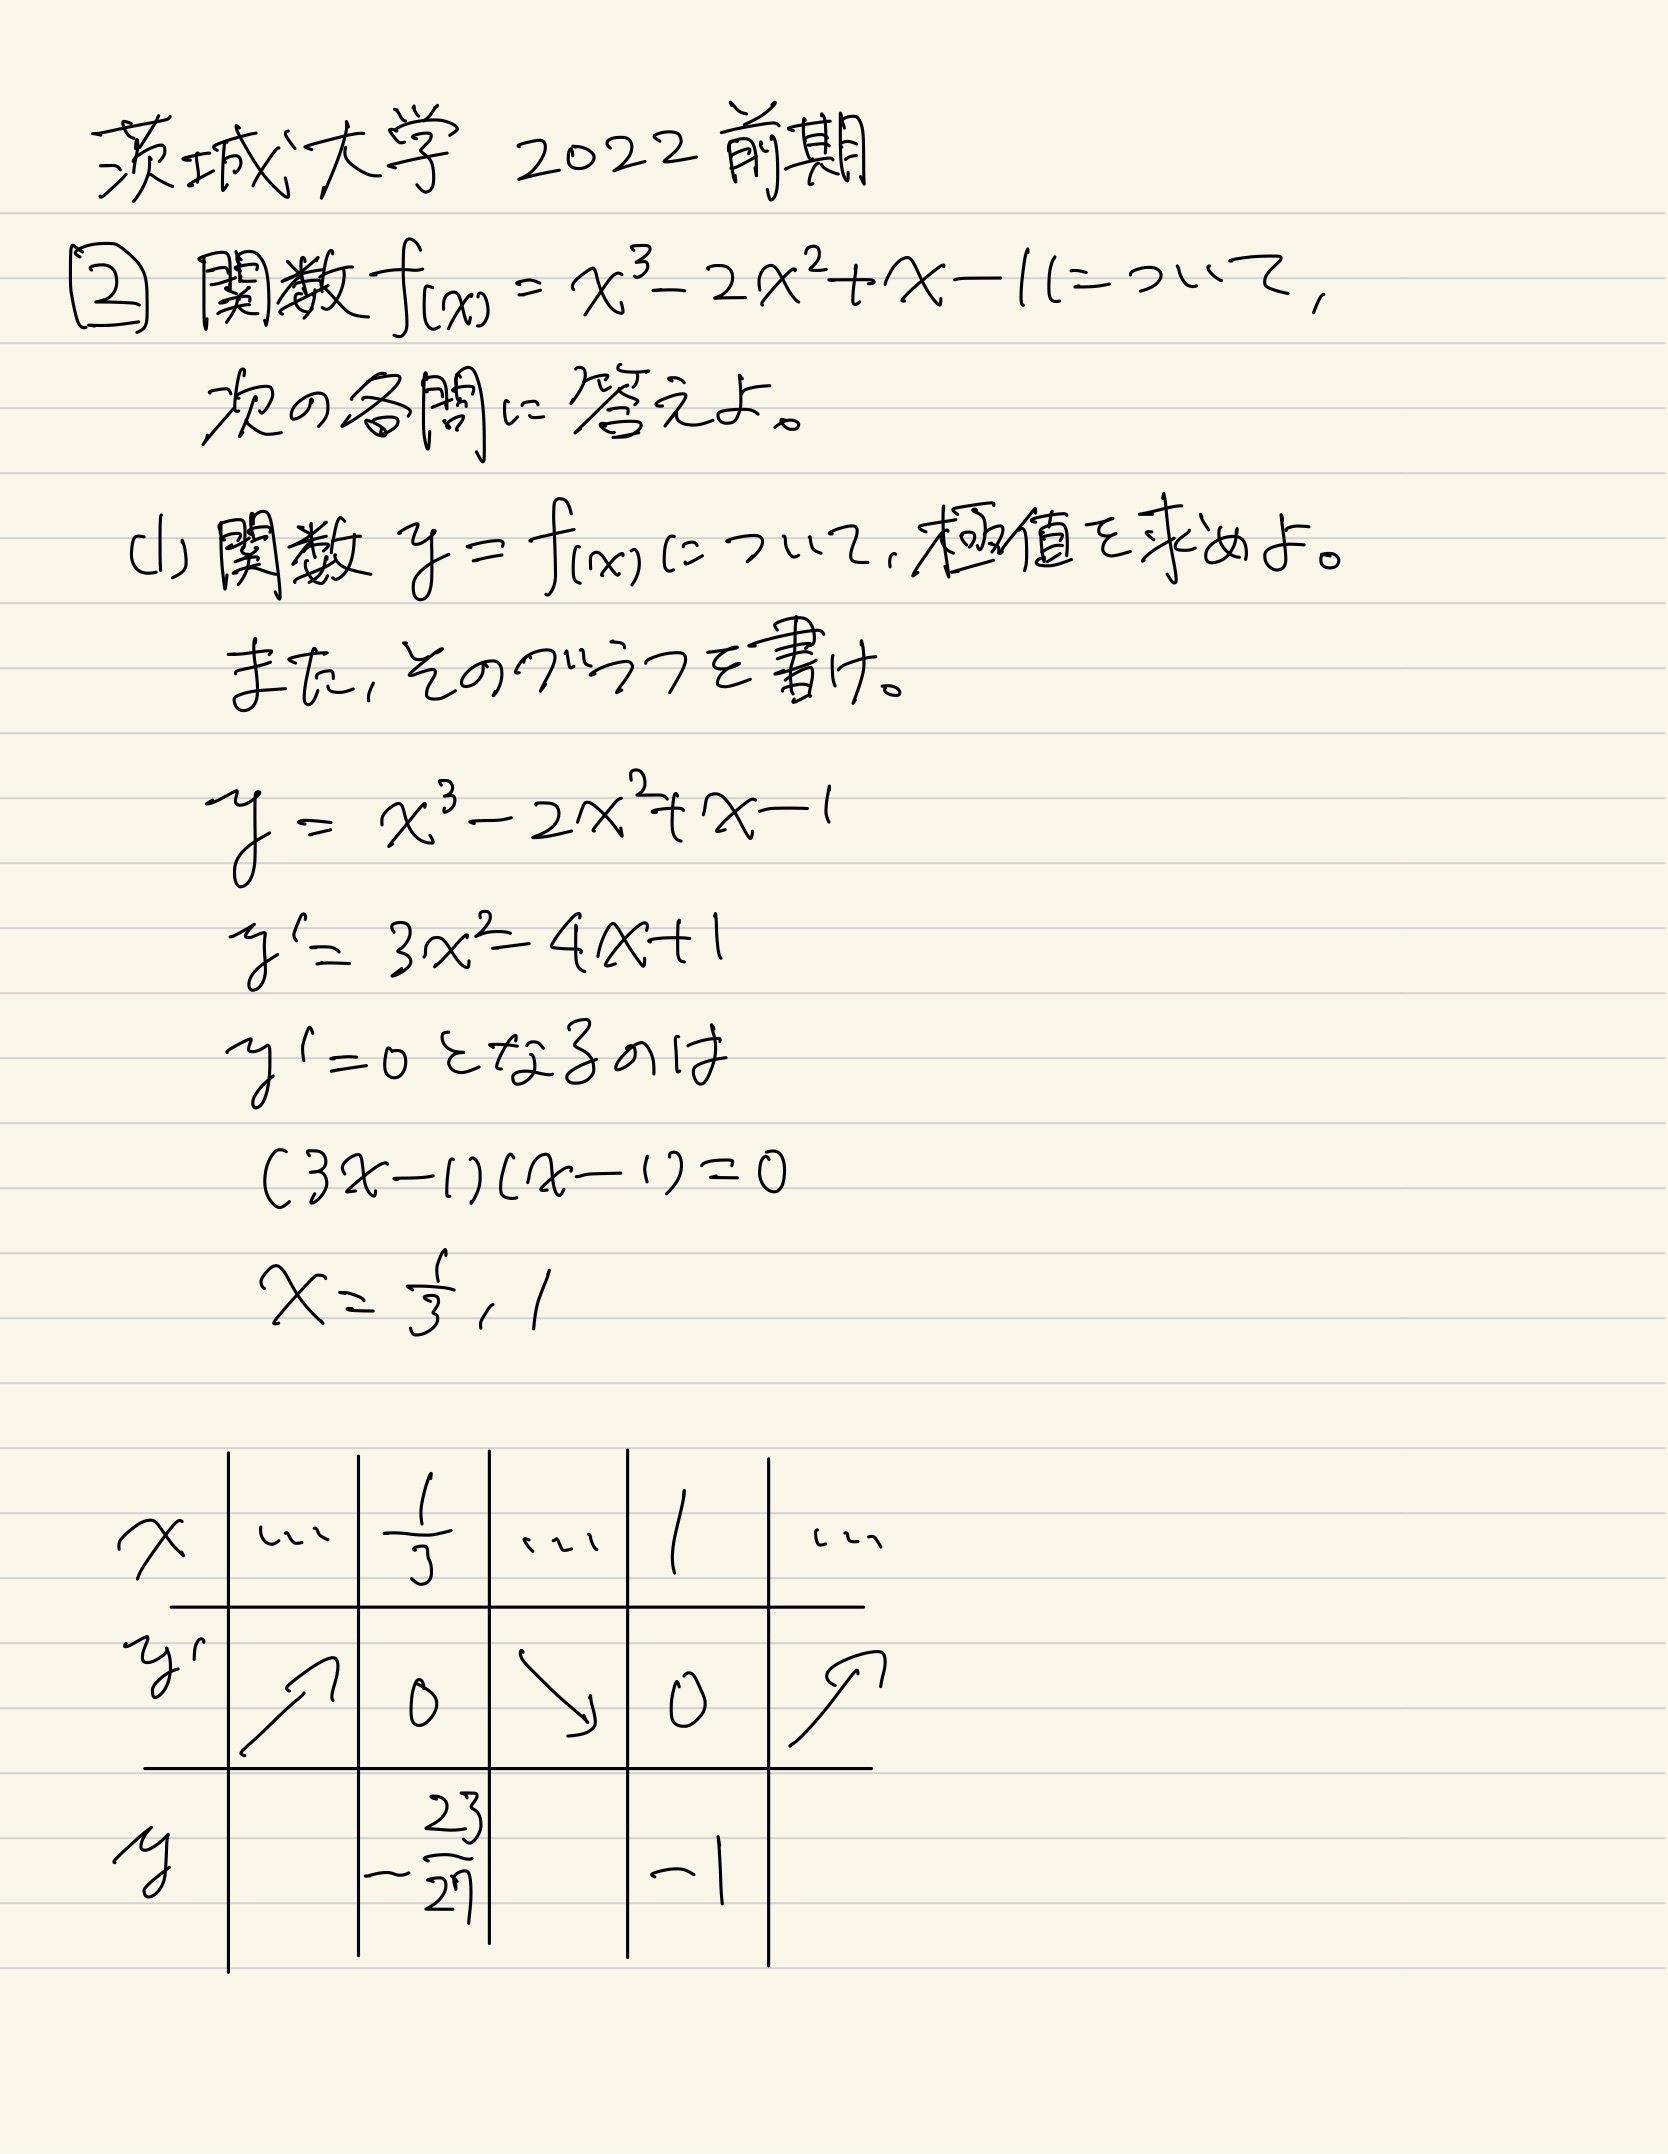 茨城大学 2022前期
② 関数f(x) = x³-2x²+x-1について,
次の各問に答えよ。
(1) 関数 y = f(x) について, 極値を求めよ。
また, そのグラフを書け。
y = x³-2x²+x-1
y' = 3x²-4x+1
y' = 0 となるのは
(3x-1)(x-1) = 0
x = 1/3, 1
x … 1/3 … 1 …
y' ↗ 0 ↘ 0 ↗
y -23/27 -1